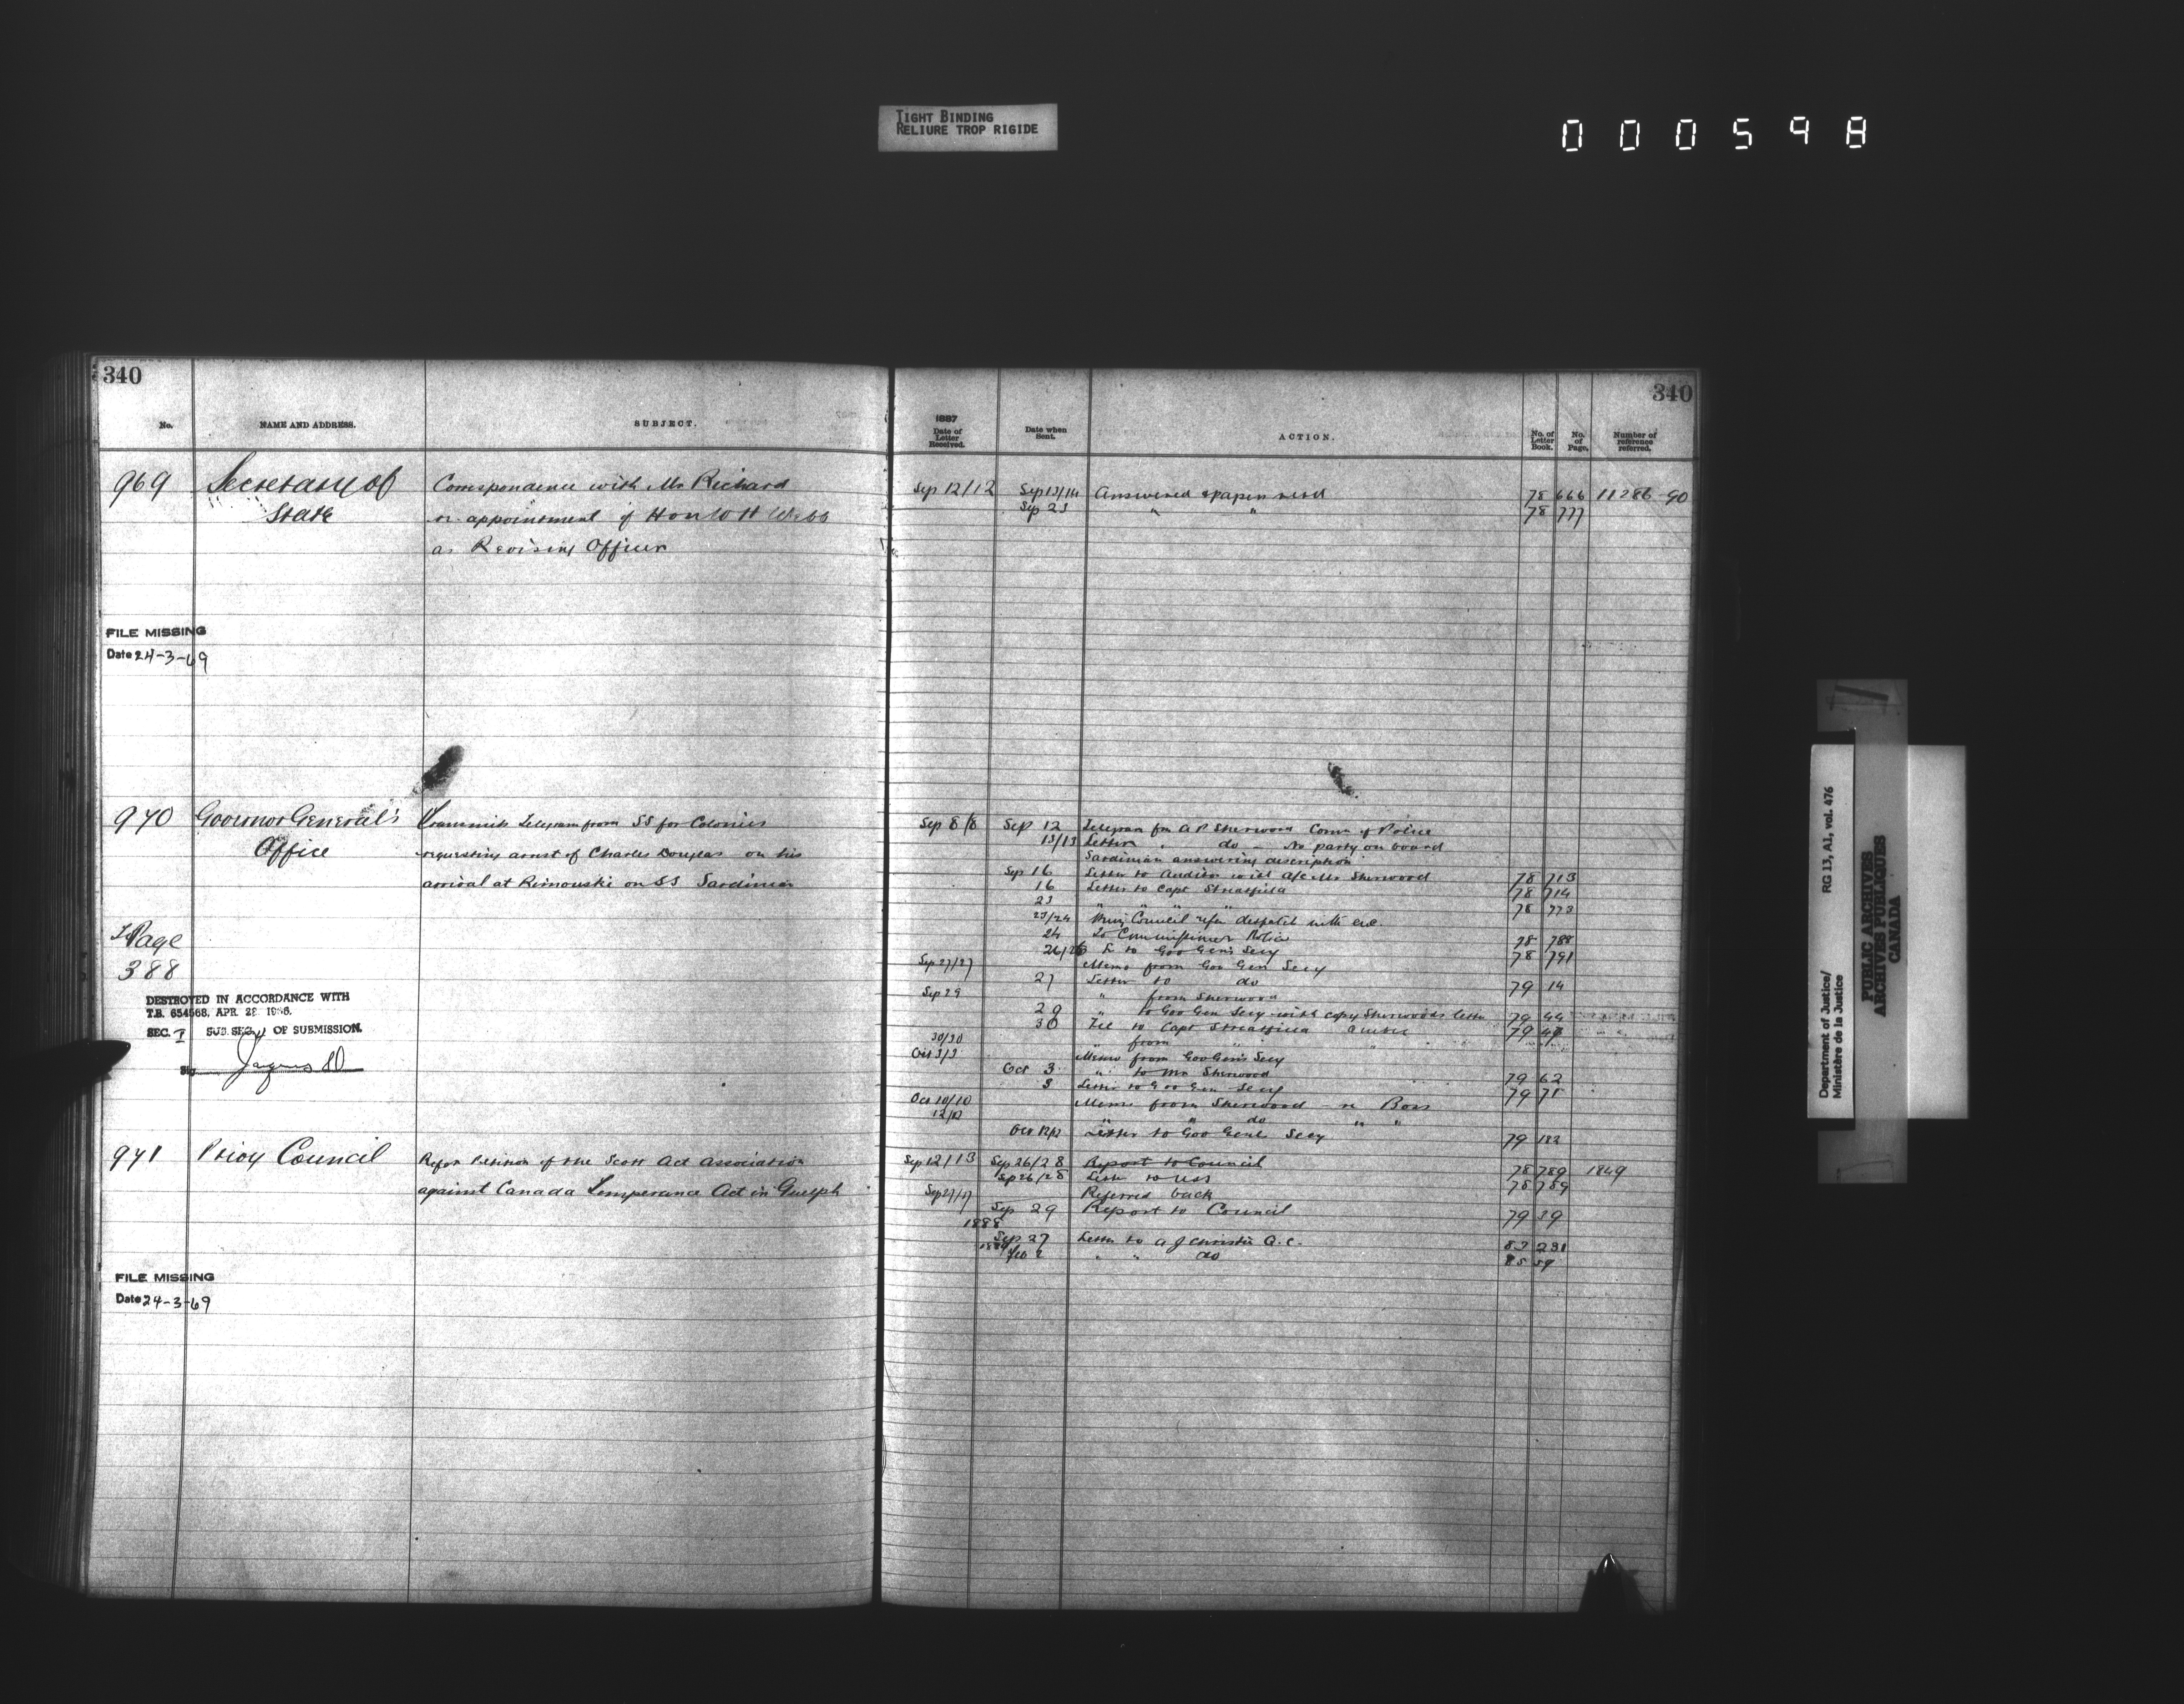 TIGHT BINDING
RELIURE TROP RIGIDE
000598
340
No.
NAME AND ADDRESS.
SUBJECT.
969
Secretary of
State
Correspondence with Mr Richard
re appointment of Hon W H Webb
as Revising Officer
FILE MISSING
Date 24-3-69
970
Governor General's
Office
Transmits Telegram from SS for Colonies
requesting arrest of Charles Douglas on his
arrival at Rimouski on SS Sardinian
To Page
388
DESTROYED IN ACCORDANCE WITH
T.B. 654568, APR. 28
SEC. I SUB SEC OF SUBMISSION.
971
Privy Council
Refer Petition of the Scott Act Association
against Canada Temperance Act in Guelph
FILE MISSING
Date 24-3-69
340
1887
Date of Letter Received.
Date when Sent.
ACTION.
No. of Letter Book.
No. of Page.
Number of reference referred.
Sep 12/12 Sep 13/14 Answered & papers retd 78 666 11286-90
Sep 23 " " 78 777
Sep 8/8 Sep 12 Telegram fm A P Sherwood Comr of Police
13/13 Letter " do - No party on board
Sardinian answering description
Sep 16 Letter to Auditor with a/c Mr Sherwood 78 713
16 Letter to Capt Streatfeild 78 714
23 " " " " 78 773
23/24 Privy Council refer despatch with enc.
24 To Commissioner Police 78 788
26/26 L to Gov Gen's Secy 78 791
Sep 27/27 Memo from Gov Gen Secy
27 Letter to do 79 14
Sep 29 " from Sherwood
29 " to Gov Gen Secy with copy Sherwoods letter 79 44
30 Tel to Capt Streatfeild 79 47
30/30 " from "
Oct 3/3 Memo from Gov Gen's Secy
Oct 3 " to Mr Sherwood 79 62
3 Letter to Gov Gen Secy 79 71
Oct 10/10 Memo from Sherwood re Bors
12/12 " " do " "
Oct 12/12 Letter to Gov Genl Secy 79 182
Sep 12/13 Sep 26/28 Report to Council 78 789 1849
Sep 26/28 Letter to USS 78 789
Sep 27/27 Referred back
Sep 29 Report to Council 79 39
1888
Sep 27 Letter to A J Christie Q.C. 83 231
1889
Feb 2 " " do 85 59
Department of Justice/
Ministère de la Justice
RG 13, A1, vol. 476
PUBLIC ARCHIVES
ARCHIVES PUBLIQUES
CANADA